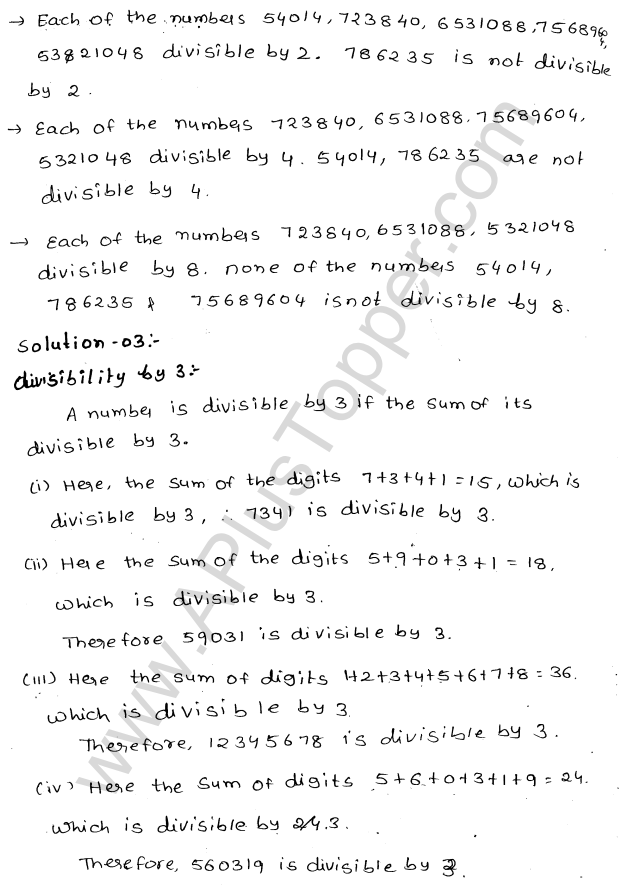 → Each of the numbers 54014, 723840, 6531088, 75689604,
53821048 divisible by 2. 786235 is not divisible
by 2.
→ Each of the numbers 723840, 6531088, 75689604,
5321048 divisible by 4. 54014, 786235 are not
divisible by 4.
→ Each of the numbers 723840, 6531088, 5321048
divisible by 8. none of the numbers 54014,
786235 & 75689604 is not divisible by 8.
Solution-03:-
divisibility by 3:-
A number is divisible by 3 if the sum of its
divisible by 3.
(i) Here, the sum of the digits 7+3+4+1=15, which is
divisible by 3, ∴ 7341 is divisible by 3.
(ii) Here the sum of the digits 5+9+0+3+1 = 18,
which is divisible by 3.
Therefore 59031 is divisible by 3.
(iii) Here the sum of digits 1+2+3+4+5+6+7+8 = 36.
which is divisible by 3
Therefore, 12345678 is divisible by 3.
(iv) Here the sum of digits 5+6+0+3+1+9 = 24.
which is divisible by 24.3.
Therefore, 560319 is divisible by 3.
www.APlusTopper.com